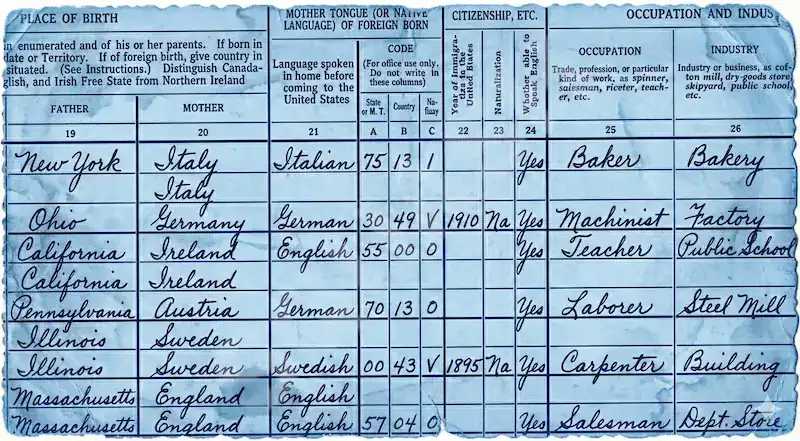 PLACE OF BIRTH MOTHER TONGUE (OR NATIVE LANGUAGE) OF FOREIGN BORN CITIZENSHIP, ETC. OCCUPATION AND INDUS
n enumerated and of his or her parents. If born in
date or Territory. If of foreign birth, give country in
situated. (See Instructions.) Distinguish Canada-
glish, and Irish Free State from Northern Ireland
FATHER MOTHER
Language spoken
in home before
coming to the
United States
CODE
(For office use only.
Do not write in
these columns)
State or M. T. Country
Year of Immigra-
to the
United States
Naturalization
Whether able to
Speak English
OCCUPATION
Trade, profession, or particular
kind of work, as spinner,
salesman, riceter, teach-
er, etc.
INDUSTRY
Industry or business, as cot-
ton mill, dry-goods store,
skipyard, public school,
etc.
19 20 21 A B C 22 23 24 25 26
New York Italy Italian 75 13 1 Yes Baker Bakery
Italy
Ohio Germany German 30 49 V 1910 Na Yes Machinist Factory
California Ireland English 55 00 0 Yes Teacher Public School
California Ireland
Pennsylvania Austria German 70 13 0 Yes Laborer Steel Mill
Illinois Sweden
Illinois Sweden Swedish 00 43 V 1895 Na Yes Carpenter Building
Massachusetts England English
Massachusetts England English 57 04 0 Yes Salesman Dept. Store